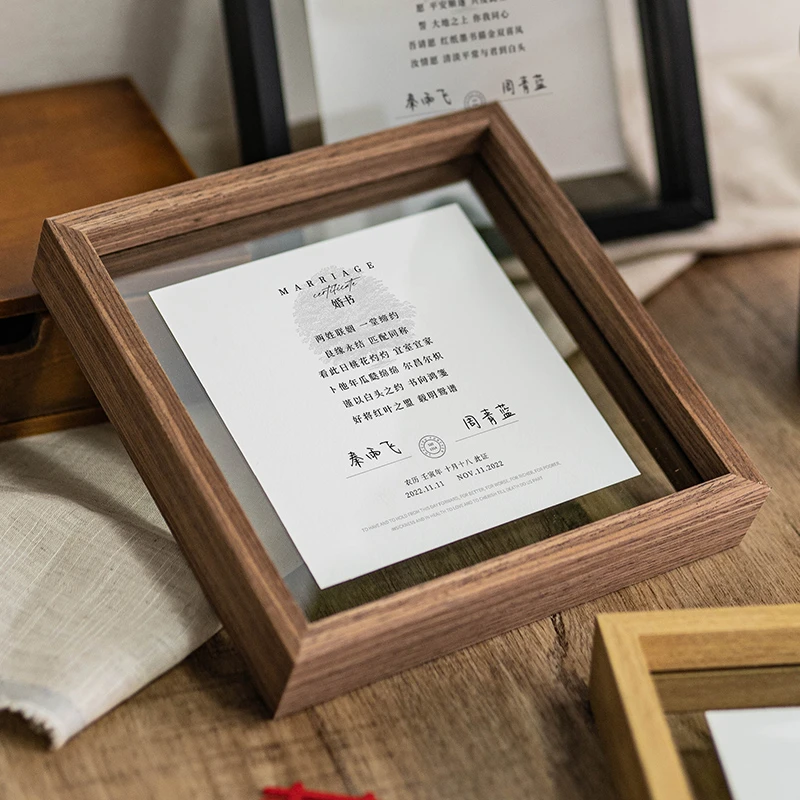 愿 平安顺遂
誓 大地之上 你我同心
吾请愿 红纸墨书描金双喜凤
汝情愿 清淡平常与君到白头
秦雨飞 周青蓝
MARRIAGE
certificate
婚书
两姓联姻 一堂缔约
良缘永结 匹配同称
看此日桃花灼灼 宜室宜家
卜他年瓜瓞绵绵 尔昌尔炽
谨以白头之约 书向鸿笺
好将红叶之盟 载明鸳谱
秦雨飞 周青蓝
农历 壬寅年 十月十八 此证
2022.11.11 NOV.11.2022
TO HAVE AND TO HOLD FROM THIS DAY FORWARD, FOR BETTER, FOR WORSE, FOR RICHER, FOR POORER,
INSICKNESS AND IN HEALTH, TO LOVE AND TO CHERISH TILL DEATH DO US PART